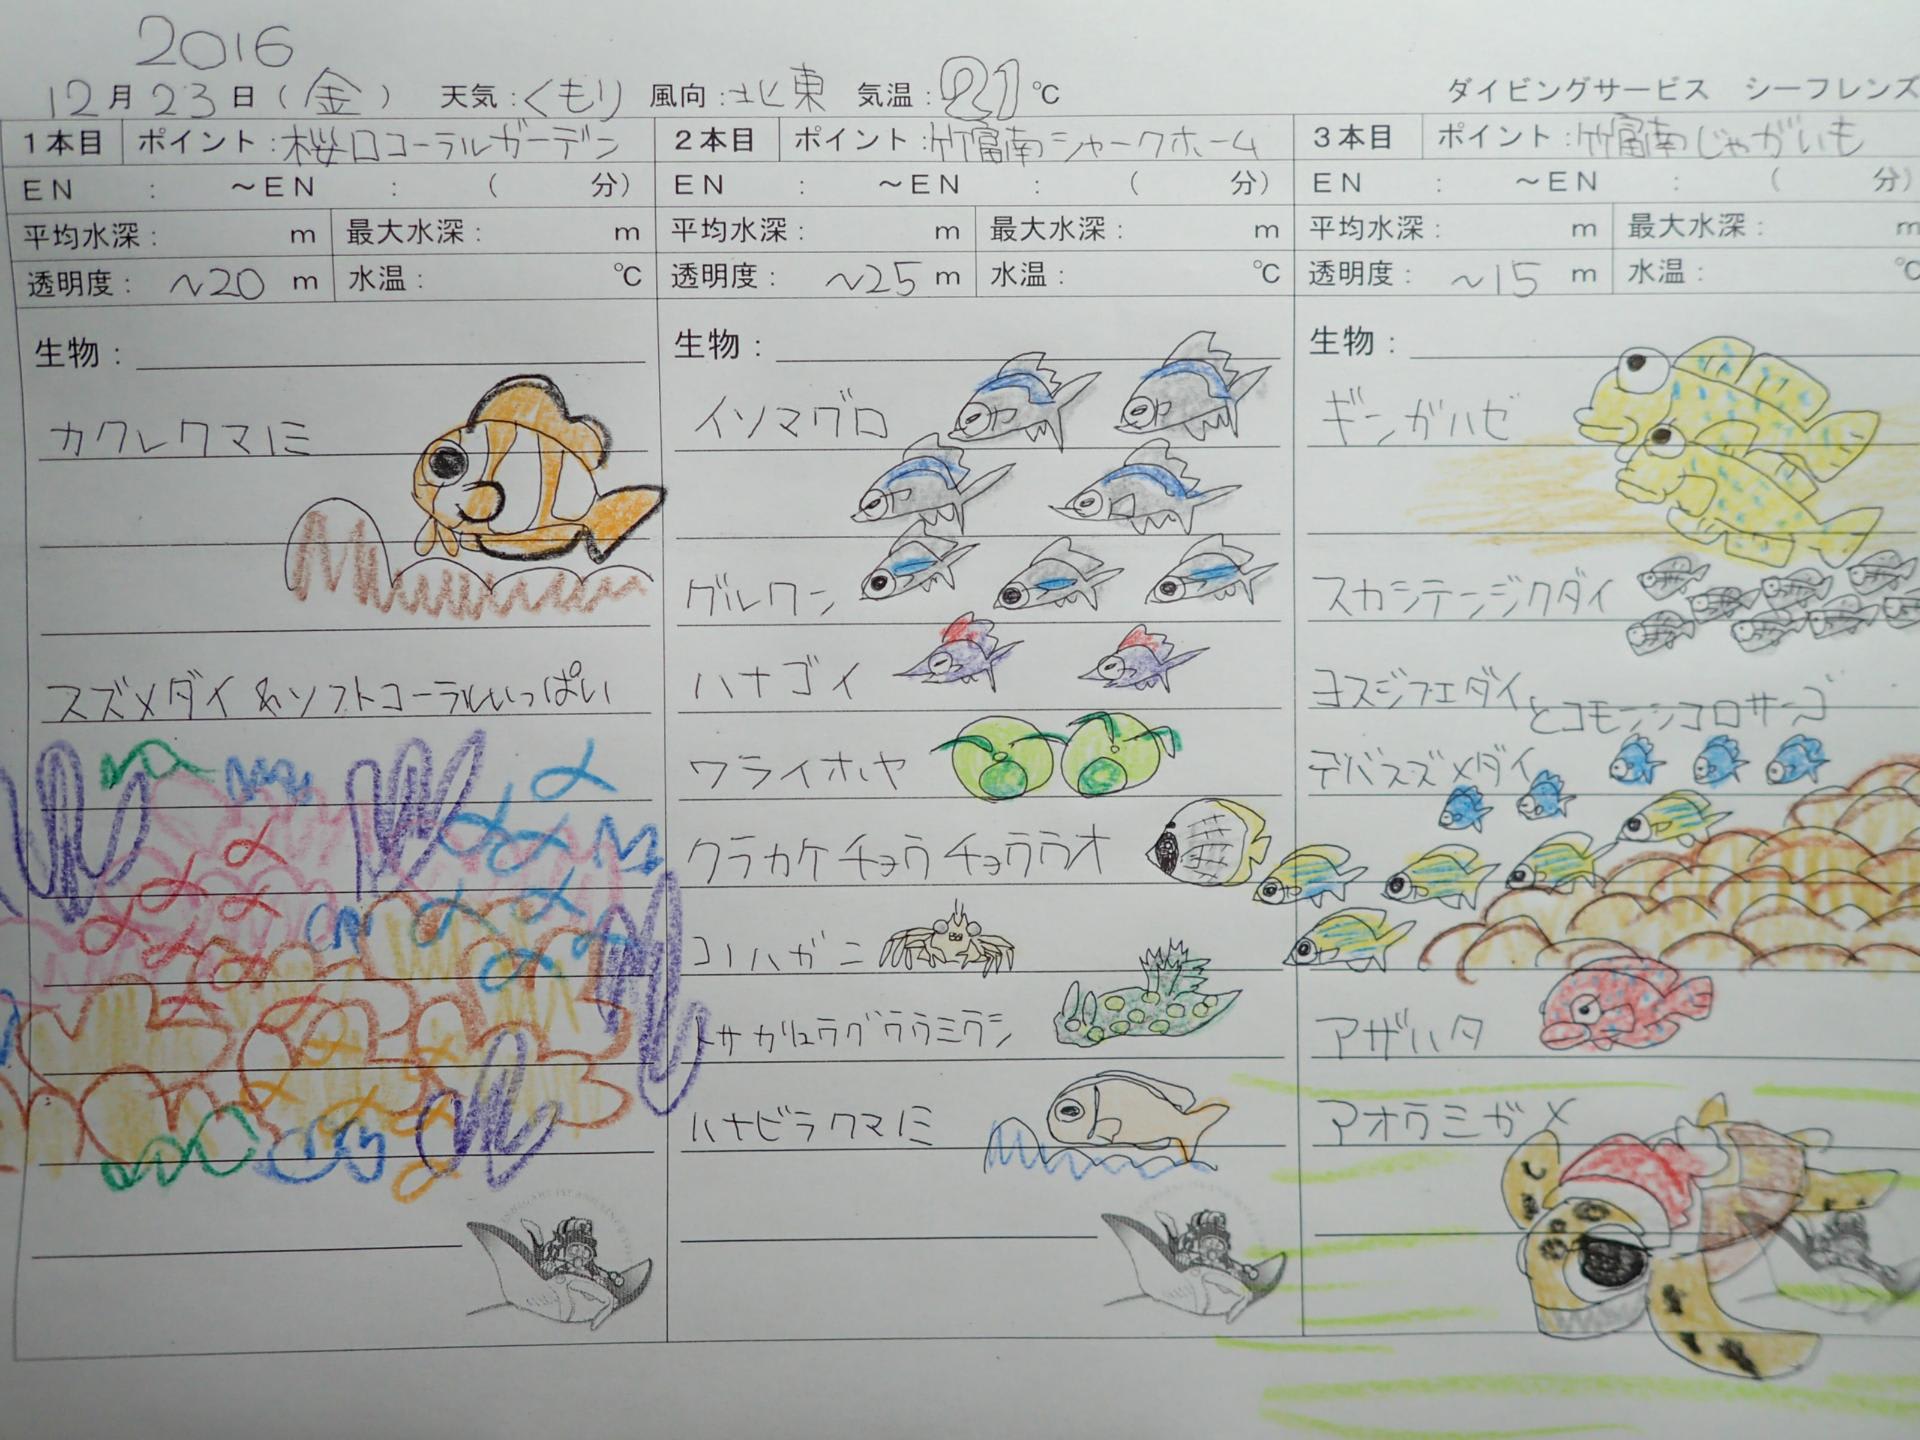 2016
12月23日(金) 天気:くもり 風向:北東 気温:21℃ ダイビングサービス シーフレンズ
1本目 ポイント:桜口コーラルガーデン
EN : ～EN : ( 分)
平均水深: m 最大水深: m
透明度: ~20 m 水温: ℃
生物:
カクレクマノミ
スズメダイ&ソフトコーラルいっぱい
2本目 ポイント:竹富南シャークホーム
EN : ～EN : ( 分)
平均水深: m 最大水深: m
透明度: ~25 m 水温: ℃
生物:
イソマグロ
グルクン
ハナゴイ
ワライホヤ
クラカケチョウチョウウオ
コノハガニ
トサカリュウグウウミウシ
ハナビラクマノミ
3本目 ポイント:竹富南じゃがいも
EN : ～EN : ( 分)
平均水深: m 最大水深: m
透明度: ~15 m 水温: ℃
生物:
ギンガハゼ
スカシテンジクダイ
ヨスジフエダイとコモンシコロサンゴ
デバスズメダイ
アザハタ
アオウミガメ